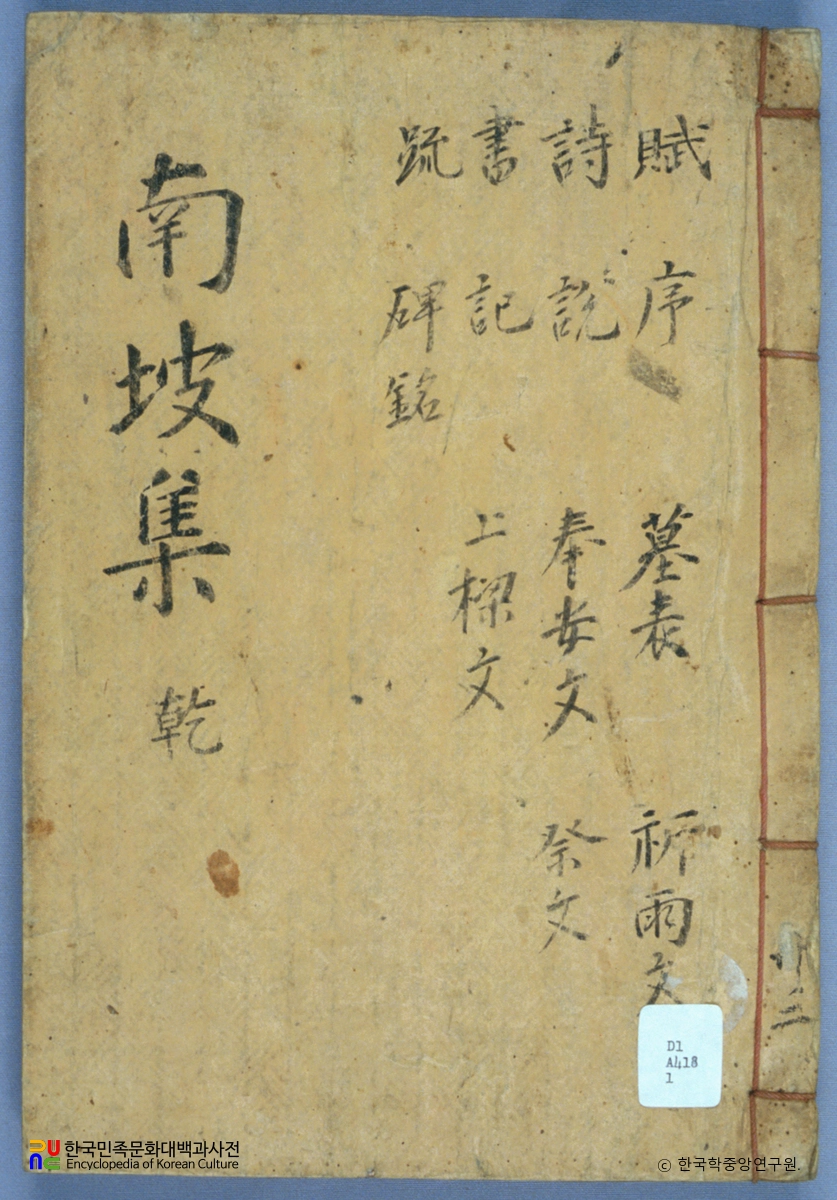 賦 序 墓表 祈雨文
詩 說 奉安文 祭文
書 記 上樑文
疏 碑銘
南坡集 乾
三
D1
A418
1
한국민족문화대백과사전
Encyclopedia of Korean Culture
© 한국학중앙연구원.